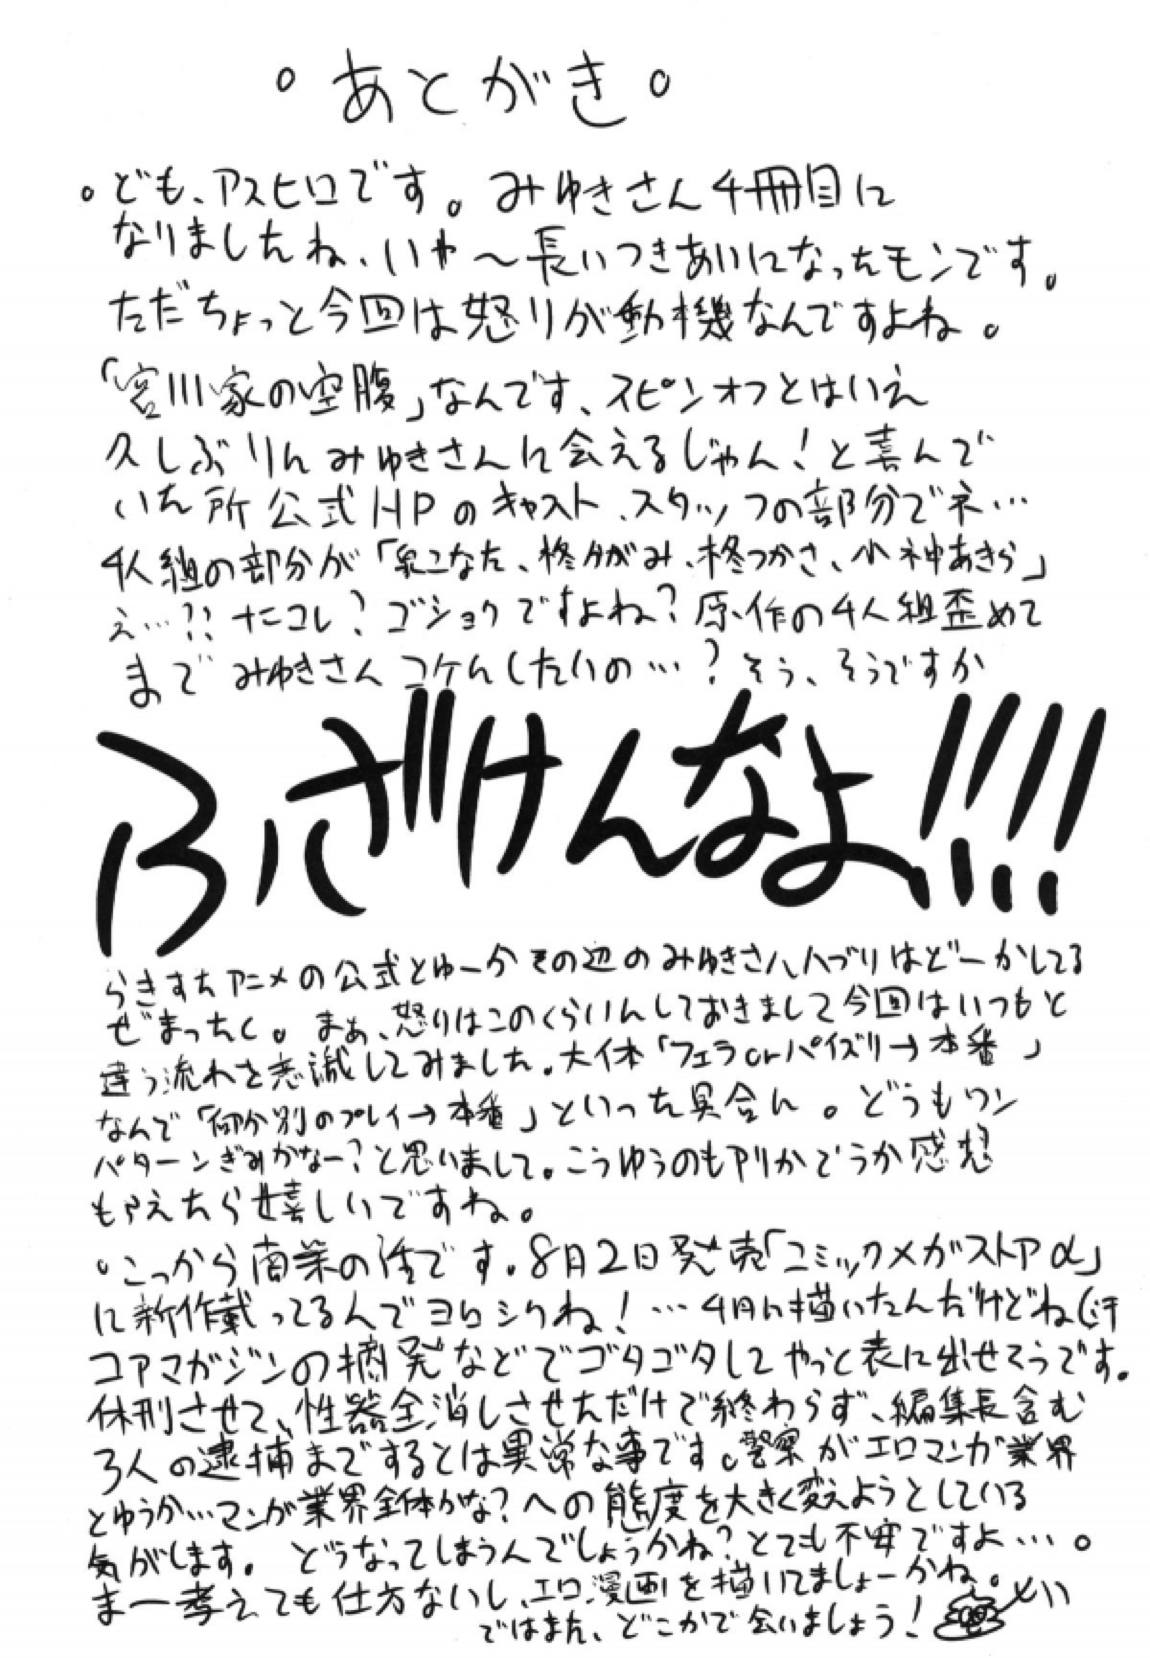 。あとがき。
。ども、アスヒロです。みゆきさん4冊目に
なりましたね、いや〜長いつきあいになったモンです。
ただちょっと今回は怒りが動機なんですよね。
「宮川家の空腹」なんです、スピンオフとはいえ
久しぶりにみゆきさんに会えるじゃん!と喜んで
いた所公式HPのキャスト、スタッフの部分でネ…
4人組の部分が「泉こなた、柊かがみ、柊つかさ、小神あきら」
え…??ナニコレ?ゴショクですよね?原作の4人組歪めて
まで みゆきさんコケにしたいの…?そう、そうですか
ふざけんなよ!!!!
らきすたアニメの公式とゆーかその辺のみゆきさんハブリはどーかしてる
ぜまったく。まぁ、怒りはこのくらいにしておきまして今回はいつもと
違う流れを意識してみました。大体「フェラorパイズリ→本番」
なんで「何か別のプレイ→本番」といった具合に。どうもワン
パターンぎみかなー?と思いまして。こうゆうのもアリかどうか感想
もらえたら嬉しいですね。
・こっから商業の話です。8月2日発売「コミックメガストアα」
に新作載ってるんでヨロシクね!…4月に描いたんだけどね(汗
コアマガジンの摘発などでゴタゴタしてやっと表に出せそうです。
休刊させて、性器全消しさせただけで終わらず、編集長含む
3人の逮捕までするとは異常な事です。警察がエロマンガ業界
とゆうか…マンガ業界全体かな?への態度を大きく変えようとしている
気がします。どうなってしまうんでしょうかね?とても不安ですよ…。
まー考えても仕方ないし、エロ漫画を描いてましょーかね。
ではまた、どこかで会いましょう!